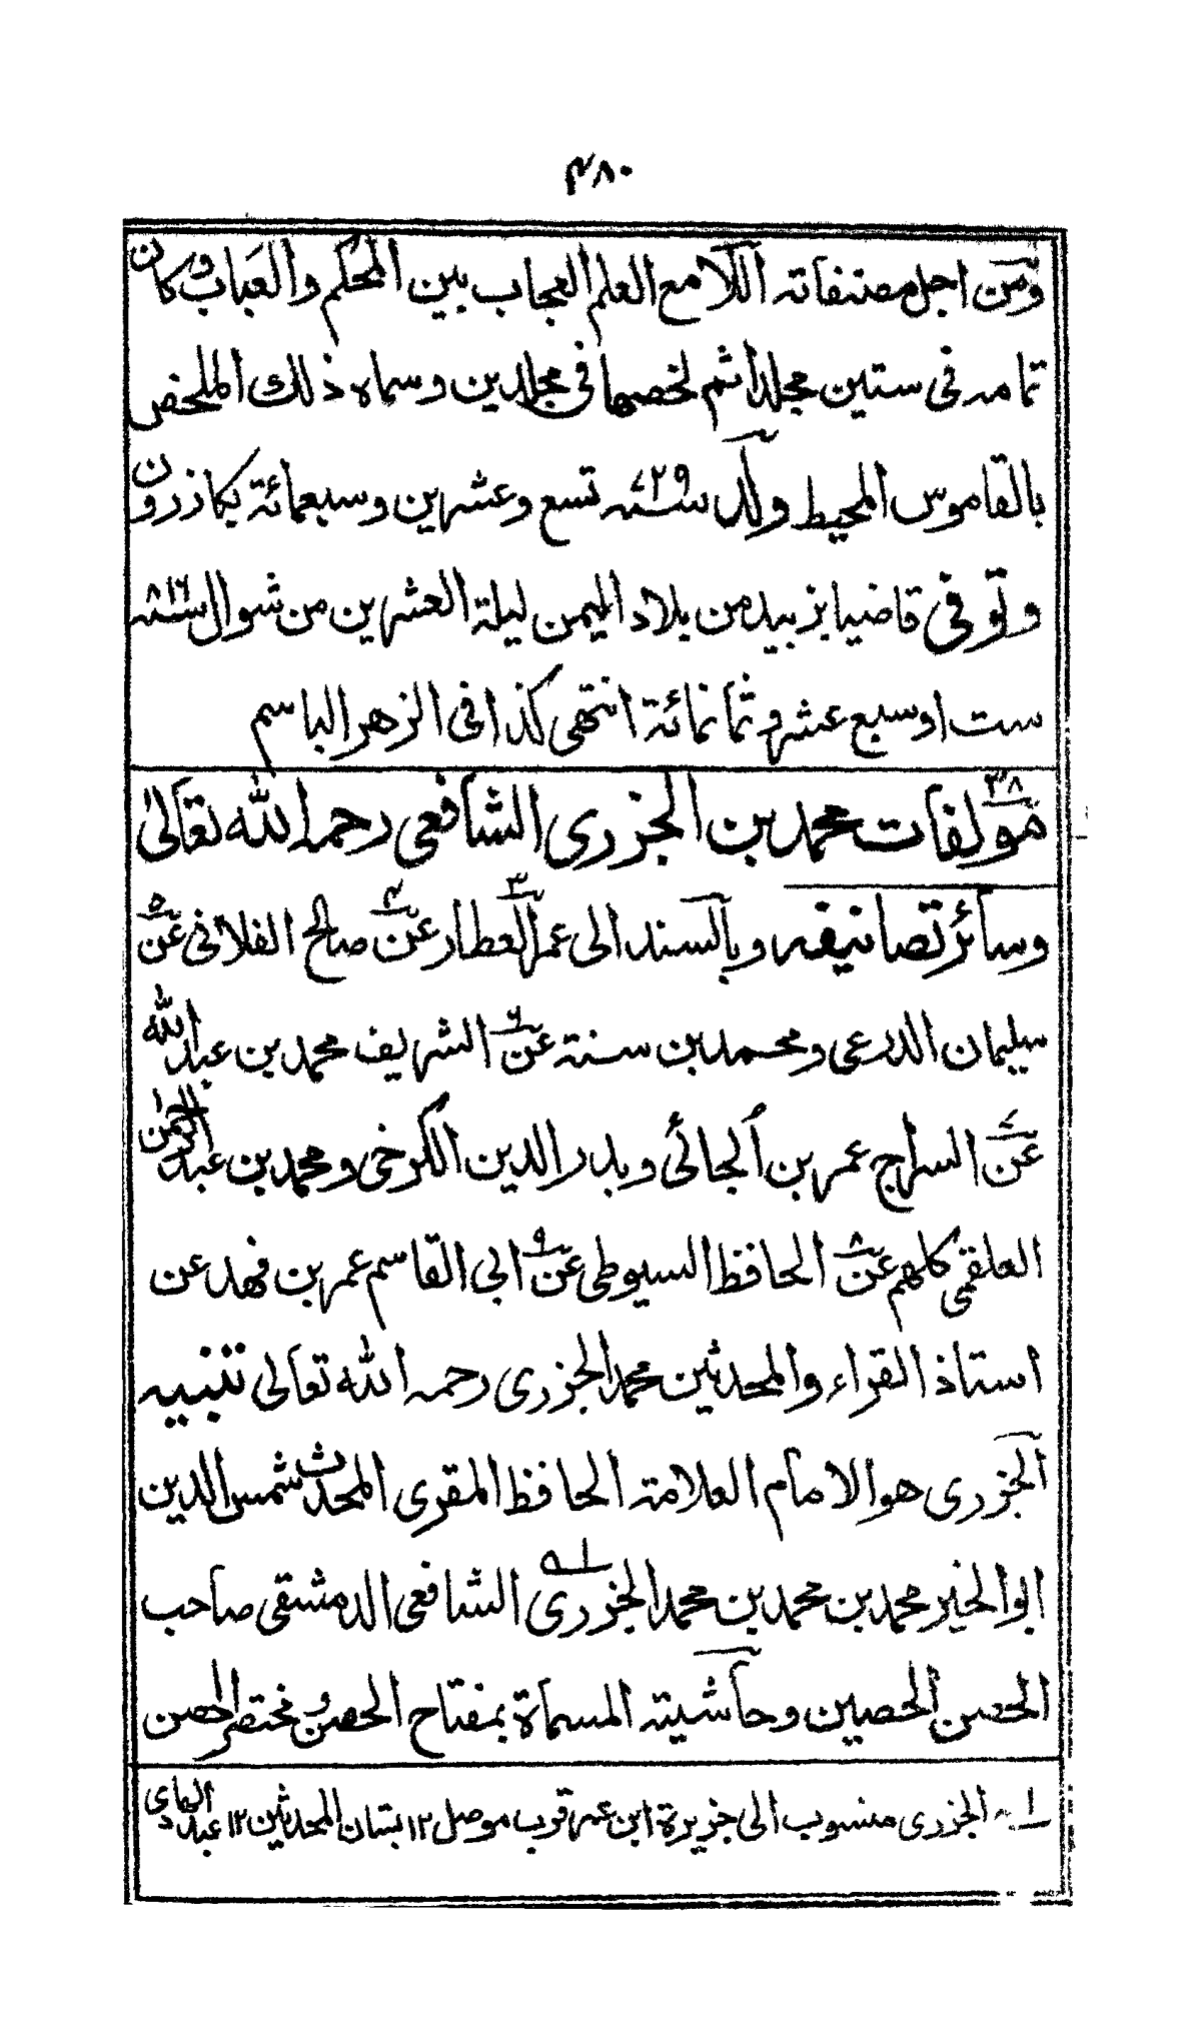 ۴۸۰
ومن اجل مصنفاته اللامع العلم العجاب بين المحكم والعباب وكان
تمامه فى ستين مجلدا ثم لخصها فى مجلدين وسماه ذلك الملخص
بالقاموس المحيط ولد سنه ۷۲۹ تسع وعشرين وسبعمائة بكازرون
وتوفى قاضيا بزبيد من بلاد اليمن ليلة العشرين من شوال سنه ۸۱۶
ست اوسبع عشر وثمانمائة انتهى كذا فى الزهر الباسم
۳۸ مؤلفات محمد بن الجزرى الشافعى رحمه الله تعالىٰ
وسائر تصانيفه وبالسند الى عمر العطار ۳ عن ۴ صالح الفلانى عن ۵
سليمان الدرعى ومحمد بن سنة عن ۶ الشريف محمد بن عبد الله
عن ۷ السراج عمر بن ألجائى وبدر الدين الكرخى ومحمد بن عبد الرحمٰن
العلقمى كلهم عن ۸ الحافظ السيوطى عن ۹ ابى القاسم عمر بن فهد عن
استاذ القراء والمحدثين محمد الجزرى رحمه الله تعالى تنبيه
الجزرى هو الامام العلامة الحافظ المقرى المحدث شمس الدين
ابو الخير محمد بن محمد بن محمد الجزرى ۱ه الشافعى الدمشقى صاحب
الحصن الحصين وحاشيته المسماة بمفتاح الحصن ومختصر الحصن
۱ه الجزرى منسوب الى جزيرة ابن عمر قرب موصل ۱۲ بستان المحدثين ۱۲ عبد الهادى